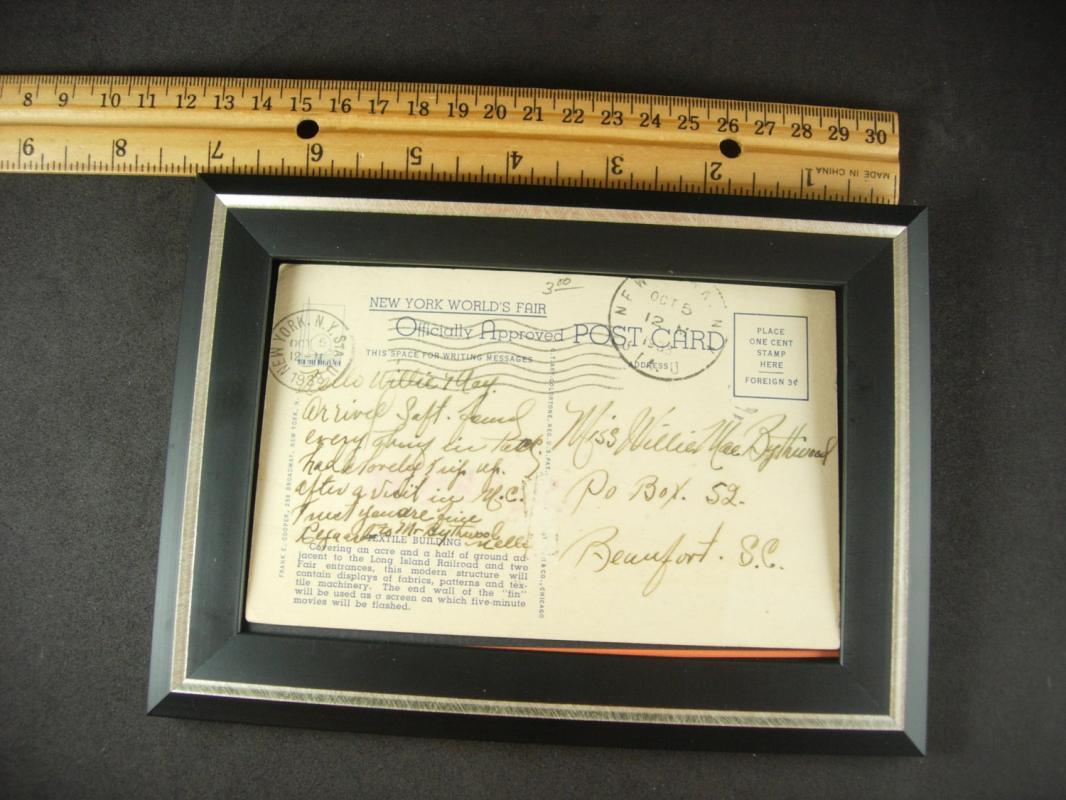 8 9 10 11 12 13 14 15 16 17 18 19 20 21 22 23 24 25 26 27 28 29 30
9 8 7 6 5 4 3 2 1
MADE IN CHINA
3.00
NEW YORK WORLD'S FAIR
Officially Approved POST CARD
THIS SPACE FOR WRITING MESSAGES
ADDRESS
NEW YORK, N.Y. STA.
OCT 5
12
193
OCT 5
12
PLACE
ONE CENT
STAMP
HERE
FOREIGN 3¢
Hello Willie May.
Arrived Saft. found
every thing in
had a lovely trip up.
after a visit in N.C.
Trust you are fine
Regards to Mr Bythwood
Nelli
TEXTILE BUILDING
Covering an acre and a half of ground ad-
jacent to the Long Island Railroad and two
Fair entrances, this modern structure will
contain displays of fabrics, patterns and tex-
tile machinery. The end wall of the "fin"
will be used as a screen on which five-minute
movies will be flashed.
FRANK E. COOPER, 258 BROADWAY, NEW YORK, N.
COLORTONE, REG. U.S. PAT.
& CO., CHICAGO
Miss Willie Mae Bythwood
Po Box. 52.
Beaufort. S.C.